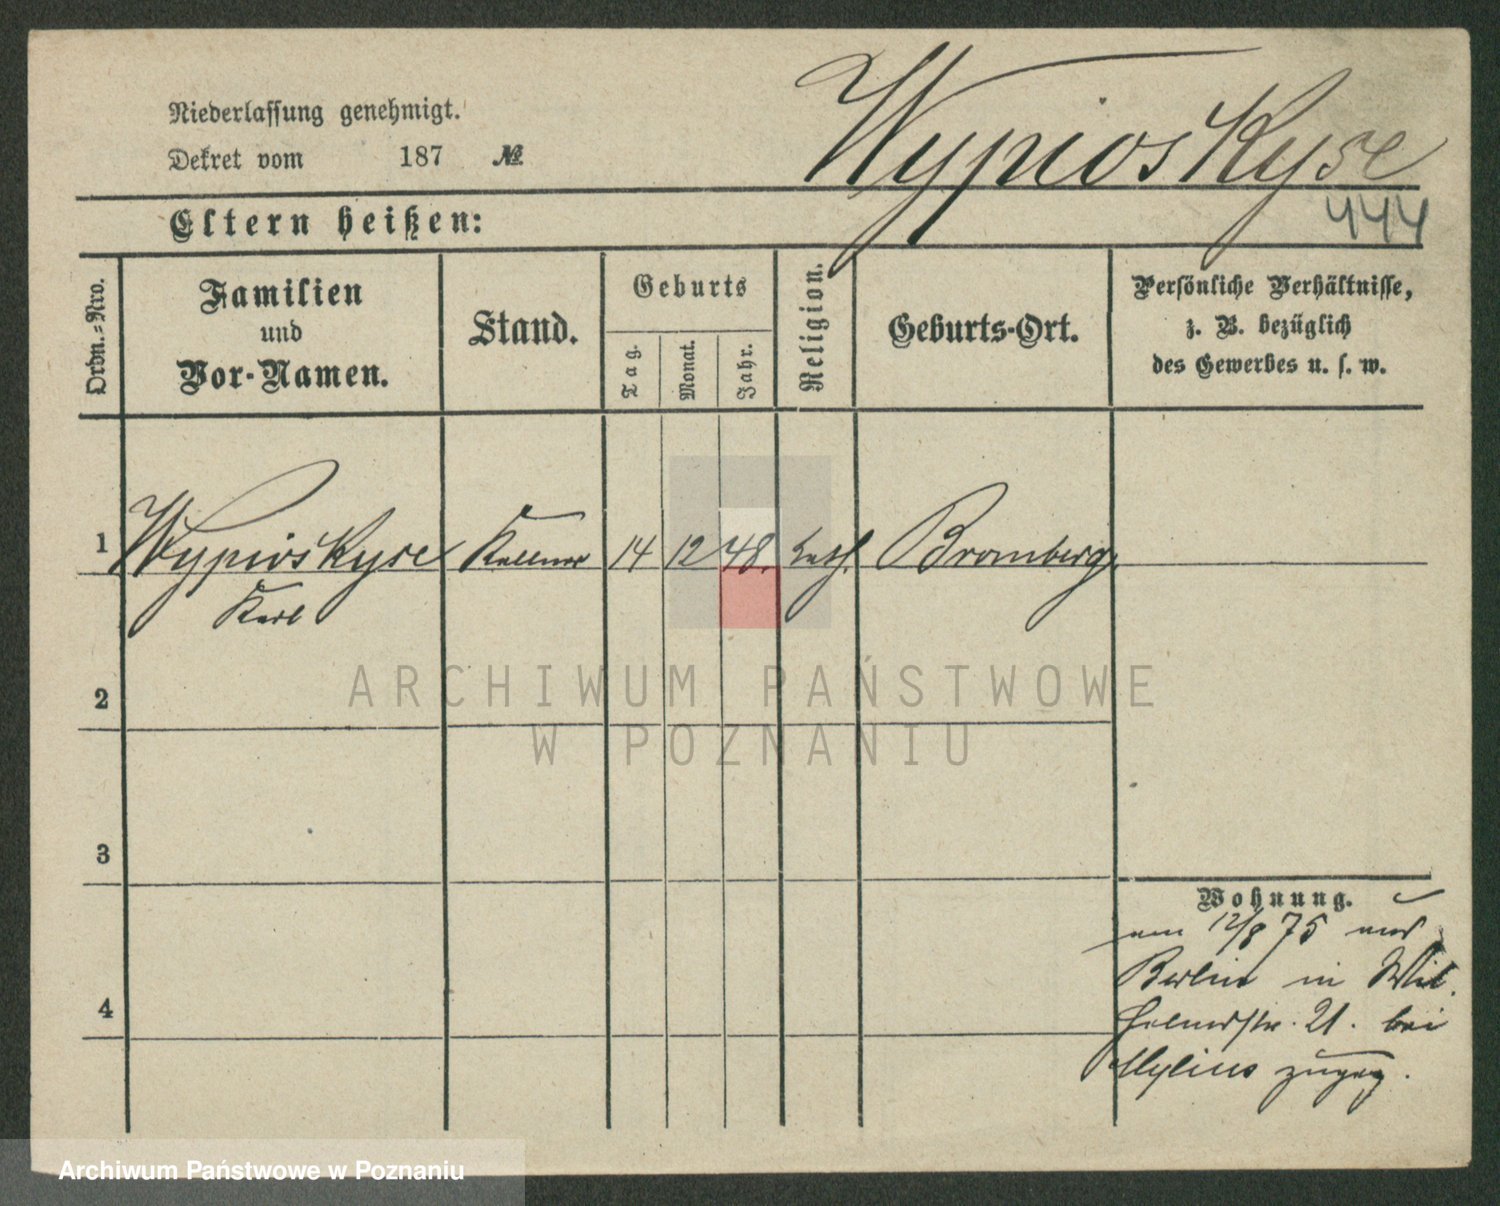 Niederlassung genehmigt.
Dekret vom 187 №
Wypioskyse
444
Eltern heißen:
Ordn.-Nro.
Familien
und
Vor-Namen.
Stand.
Geburts
Tag.
Monat.
Jahr.
Religion.
Geburts-Ort.
Persönliche Verhältnisse,
z. B. bezüglich
des Gewerbes u. s. w.
1 Wypioskyse Kellner 14 12 48. kath. Bromberg
Karl
2
3
4
Wohnung.
am 12/8 75 aus
Berlin in Wil
helmstr. 21. bei
Mylius zugez.
ARCHIWUM PAŃSTWOWE
W POZNANIU
Archiwum Państwowe w Poznaniu